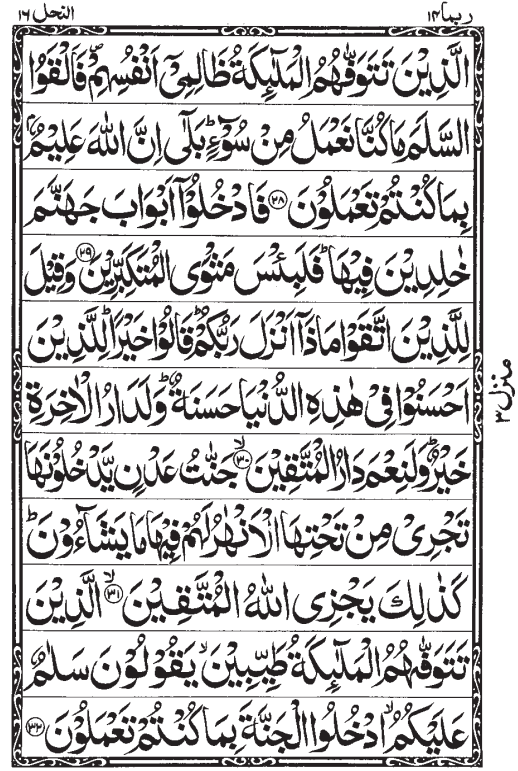 ربما ١٤ النحل ١٦
الَّذِيْنَ تَتَوَفّٰهُمُ الْمَلٰٓئِكَةُ ظَالِمِيْۤ اَنْفُسِهِمْ۪ فَاَلْقَوُا
السَّلَمَ مَا كُنَّا نَعْمَلُ مِنْ سُوْٓءٍ ؕ بَلٰۤى اِنَّ اللّٰهَ عَلِيْمٌۢ
بِمَا كُنْتُمْ تَعْمَلُوْنَ ﴿۲۸﴾ فَادْخُلُوْۤا اَبْوَابَ جَهَنَّمَ
خٰلِدِيْنَ فِيْهَا ؕ فَلَبِئْسَ مَثْوَى الْمُتَكَبِّرِيْنَ ﴿۲۹﴾ وَقِيْلَ
لِلَّذِيْنَ اتَّقَوْا مَا ذَاۤ اَنْزَلَ رَبُّكُمْ ؕ قَالُوْا خَيْرًا ؕ لِلَّذِيْنَ
اَحْسَنُوْا فِيْ هٰذِهِ الدُّنْيَا حَسَنَةٌ ؕ وَلَدَارُ الْاٰخِرَةِ
خَيْرٌ ؕ وَلَنِعْمَ دَارُ الْمُتَّقِيْنَ ﴿۳۰﴾ۙ جَنّٰتُ عَدْنٍ يَّدْخُلُوْنَهَا
تَجْرِيْ مِنْ تَحْتِهَا الْاَنْهٰرُ لَهُمْ فِيْهَا مَا يَشَآءُوْنَ ؕ
كَذٰلِكَ يَجْزِي اللّٰهُ الْمُتَّقِيْنَ ﴿۳۱﴾ۙ الَّذِيْنَ
تَتَوَفّٰهُمُ الْمَلٰٓئِكَةُ طَيِّبِيْنَ ۙ يَقُوْلُوْنَ سَلٰمٌ
عَلَيْكُمُ ۙ ادْخُلُوا الْجَنَّةَ بِمَا كُنْتُمْ تَعْمَلُوْنَ ﴿۳۲﴾
منزل ٣